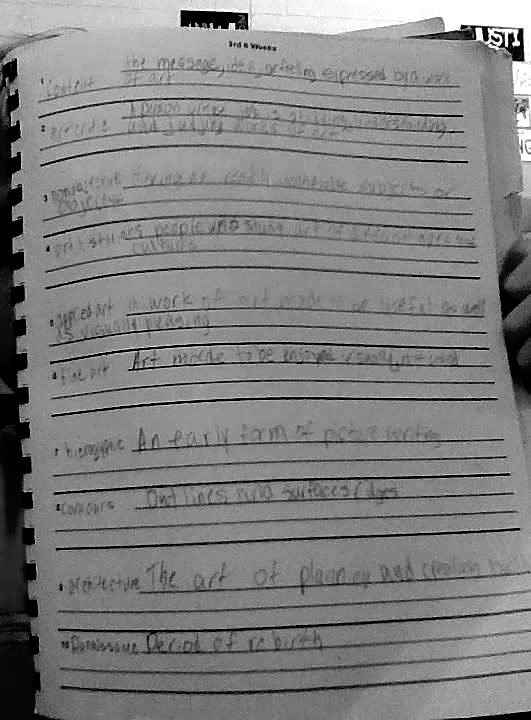 USTI
3rd 6 Weeks
the message, idea, or feeling expressed by a work
• Content of art
A person whose job is studying, understanding,
• art critic and judging works of art
• nonobjective Having no readily subjects or
objectives
• art historians people who study art of different ages and
cultures
• applied art a work of art made to be useful as well
as visually pleasing
• fine art Art made to be enjoyed visually, not used
• hieroglyphic An early form of picture writing
• Contours Outlines and surfaces ridges
• architecture The art of planning and creating
• Renaissance Period of rebirth